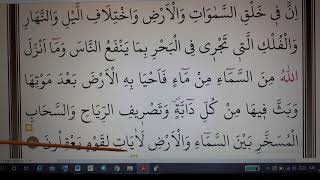 اِنَّ فِي خَلْقِ السَّمٰوَاتِ وَالْاَرْضِ وَاخْتِلَافِ الَّيْلِ وَالنَّهَارِ
وَالْفُلْكِ الَّتِي تَجْرِي فِي الْبَحْرِ بِمَا يَنْفَعُ النَّاسَ وَمَٓا اَنْزَلَ
اللّٰهُ مِنَ السَّمَٓاءِ مِنْ مَٓاءٍ فَاَحْيَا بِهِ الْاَرْضَ بَعْدَ مَوْتِهَا
وَبَثَّ فِيهَا مِنْ كُلِّ دَٓابَّةٍ وَتَصْرِيفِ الرِّيَاحِ وَالسَّحَابِ
الْمُسَخَّرِ بَيْنَ السَّمَٓاءِ وَالْاَرْضِ لَاٰيَاتٍ لِقَوْمٍ يَعْقِلُونَ